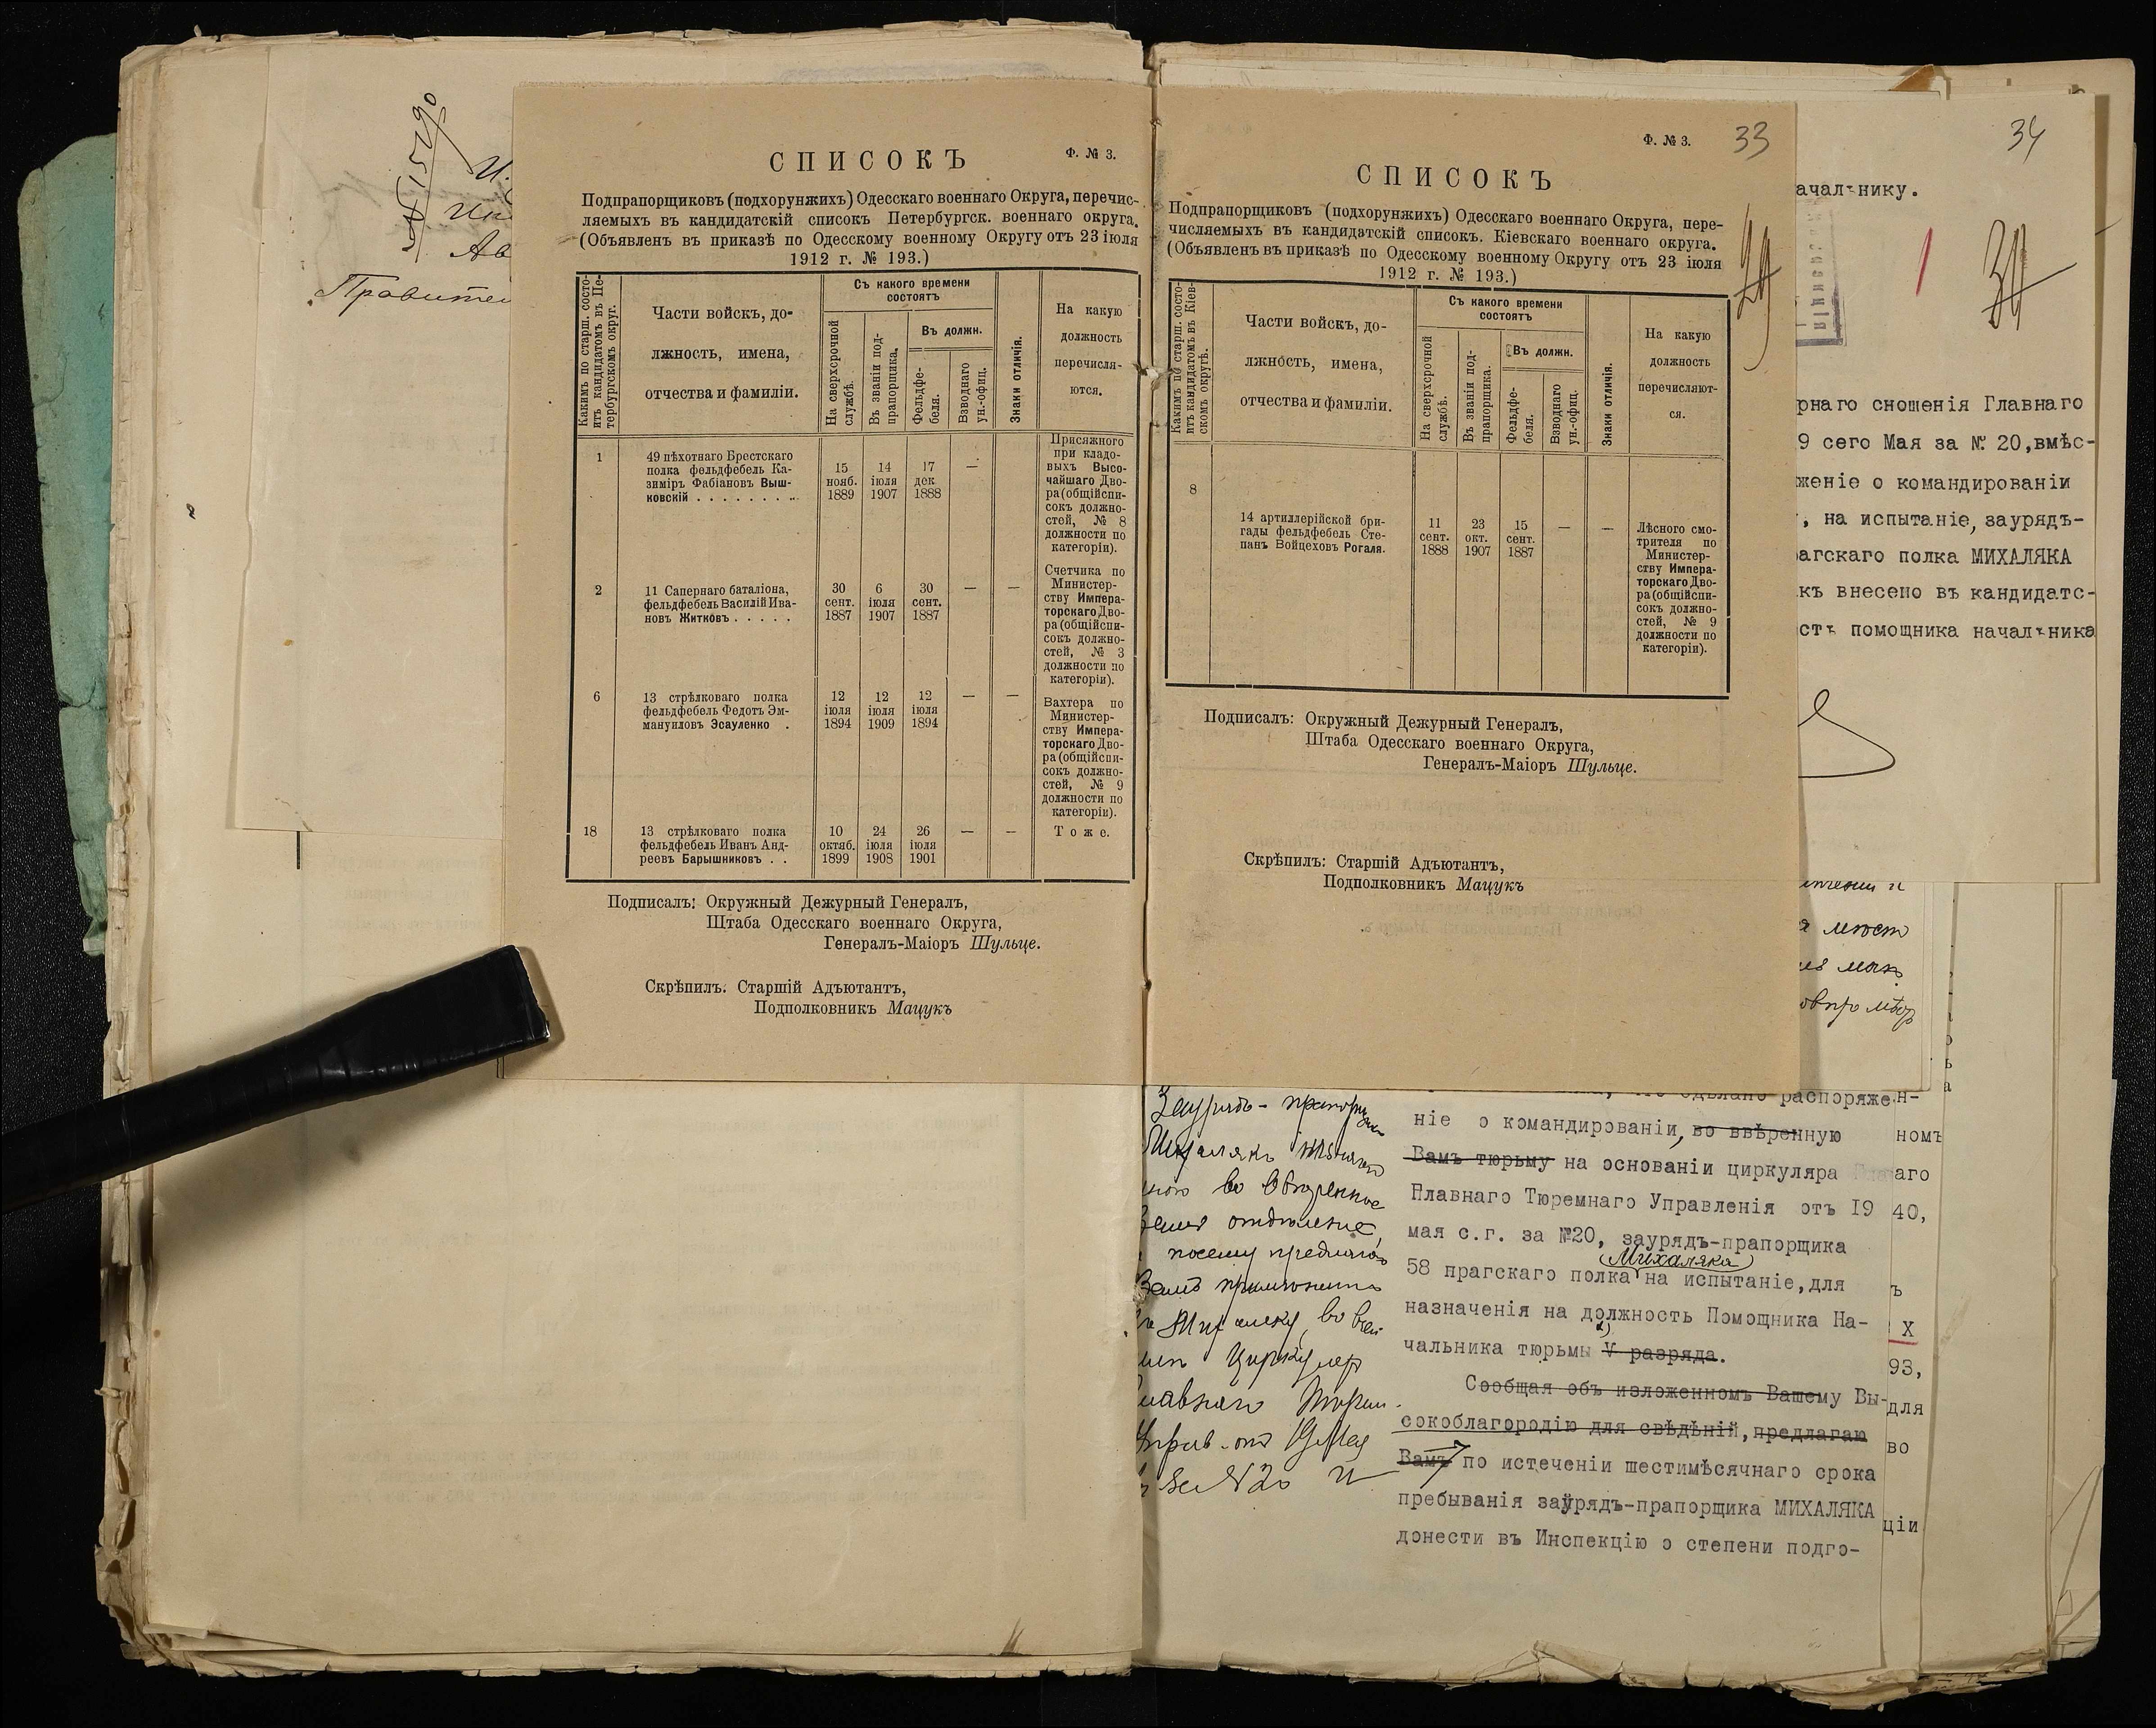 № 15290
Правител
Ф. № 3.
СПИСОКЪ
Подпрапорщиковъ (подхорунжихъ) Одесскаго военнаго Округа, перечис-
ляемыхъ въ кандидатскій списокъ Петербургск. военнаго округа.
(Объявленъ въ приказѣ по Одесскому военному Округу отъ 23 іюля
1912 г. № 193.)
Какимъ по старш. состо-
итъ кандидатомъ въ Пе-
тербургскомъ округ.
Части войскъ, до-
лжность, имена,
отчества и фамиліи.
Съ какого времени
состоятъ
На сверхсрочной
службѣ.
Въ званіи под-
прапорщика.
Въ должн.
Фельдфе-
беля.
Взводнаго
ун.-офиц.
Знаки отличія.
На какую
должность
перечисля-
ются.
1
49 пѣхотнаго Брестскаго
полка фельдфебель Ка-
зиміръ Фабіановъ Выш-
ковскій . . . . . . . .
15
нояб.
1889
14
іюля
1907
17
дек.
1888
—
Присяжного
при кладо-
выхъ Высо-
чайшаго Дво-
ра (общій спи-
сокъ должно-
стей, № 8
должности по
категоріи).
2
11 Сапернаго баталіона,
фельдфебель Василій Ива-
новъ Житковъ . . . . .
30
сент.
1887
6
іюля
1907
30
сент.
1887
—
—
Счетчика по
Министер-
ству Импера-
торскаго Дво-
ра (общій спи-
сокъ должно-
стей, № 3
должности по
категоріи).
6
13 стрѣлковаго полка
фельдфебель Федотъ Эм-
мануиловъ Эсауленко .
12
іюля
1894
12
іюля
1909
12
іюля
1894
—
—
Вахтера по
Министер-
ству Импера-
торскаго Дво-
ра (общій спи-
сокъ должно-
стей, № 9
должности по
категоріи).
18
13 стрѣлковаго полка
фельдфебель Иванъ Анд-
реевъ Барышниковъ . .
10
октяб.
1899
24
іюля
1908
26
іюля
1901
—
—
Тоже.
Подписалъ: Окружный Дежурный Генералъ,
Штаба Одесскаго военнаго Округа,
Генералъ-Маіоръ Шульце.
Скрѣпилъ. Старшій Адъютантъ,
Подполковникъ Мацукъ
Ф. № 3.
33
СПИСОКЪ
Подпрапорщиковъ (подхорунжихъ) Одесскаго военнаго Округа, пере-
числяемыхъ въ кандидатскій списокъ. Кіевскаго военнаго округа.
(Объявленъ въ приказѣ по Одесскому военному Округу отъ 23 іюля
1912 г. № 193.)
29
Какимъ по старш. состо-
итъ кандидатомъ въ Кіев-
скомъ округѣ.
Части войскъ, до-
лжность, имена,
отчества и фамиліи.
Съ какого времени
состоятъ
На сверхсрочной
службѣ.
Въ званіи под-
прапорщика.
Въ должн.
Фельдфе-
беля.
Взводнаго
ун.-офиц.
Знаки отличія.
На какую
должность
перечисляют-
ся.
8
14 артиллерійской бри-
гады фельдфебель Сте-
панъ Войцеховъ Рогаля.
11
сент.
1888
23
окт.
1907
15
сент.
1887
—
—
Лѣсного смо-
трителя по
Министер-
ству Импера-
торскаго Дво-
ра (общій спи-
сокъ должно-
стей, № 9
должности по
категоріи).
Подписалъ: Окружный Дежурный Генералъ,
Штаба Одесскаго военнаго Округа,
Генералъ-Маіоръ Шульце.
Скрѣпилъ: Старшій Адъютантъ,
Подполковникъ Мацукъ
34
ачальнику.
рнаго сношенія Главнаго
9 сего Мая за № 20,вмѣс-
женіе о командированіи
, на испытаніе, заурядъ-
рагскаго полка МИХАЛЯКА
къ внесено въ кандидатс-
сть помощника начальника
Заурядъ-прапорщ
Михалякъ
во ввѣренное
Вамъ отдѣленіе,
посему предлагаю
Вамъ
Циркуляр
Главнаго Тюрем.
Управ. отъ 19 Мая
за №20 и
распоряжен-
ніе о командированіи, во ввѣренную
Вамъ тюрьму на основаніи циркуляра
Главнаго Тюремнаго Управленія отъ 19
мая с.г. за №20, заурядъ-прапорщика
Михаляка
58 прагскаго полка на испытаніе,для
назначенія на должность Помощника На-
чальника тюрьмы V разряда.
Сообщая объ изложенномъ Вашему Вы-
сокоблагородію для свѣдѣній, предлагаю
Вамъ по истеченіи шестимѣсячнаго срока
пребыванія заурядъ-прапорщика МИХАЛЯКА
донести въ Инспекцію о степени подго-
номъ
аго
40,
ъ
X
93,
для
во
ціи